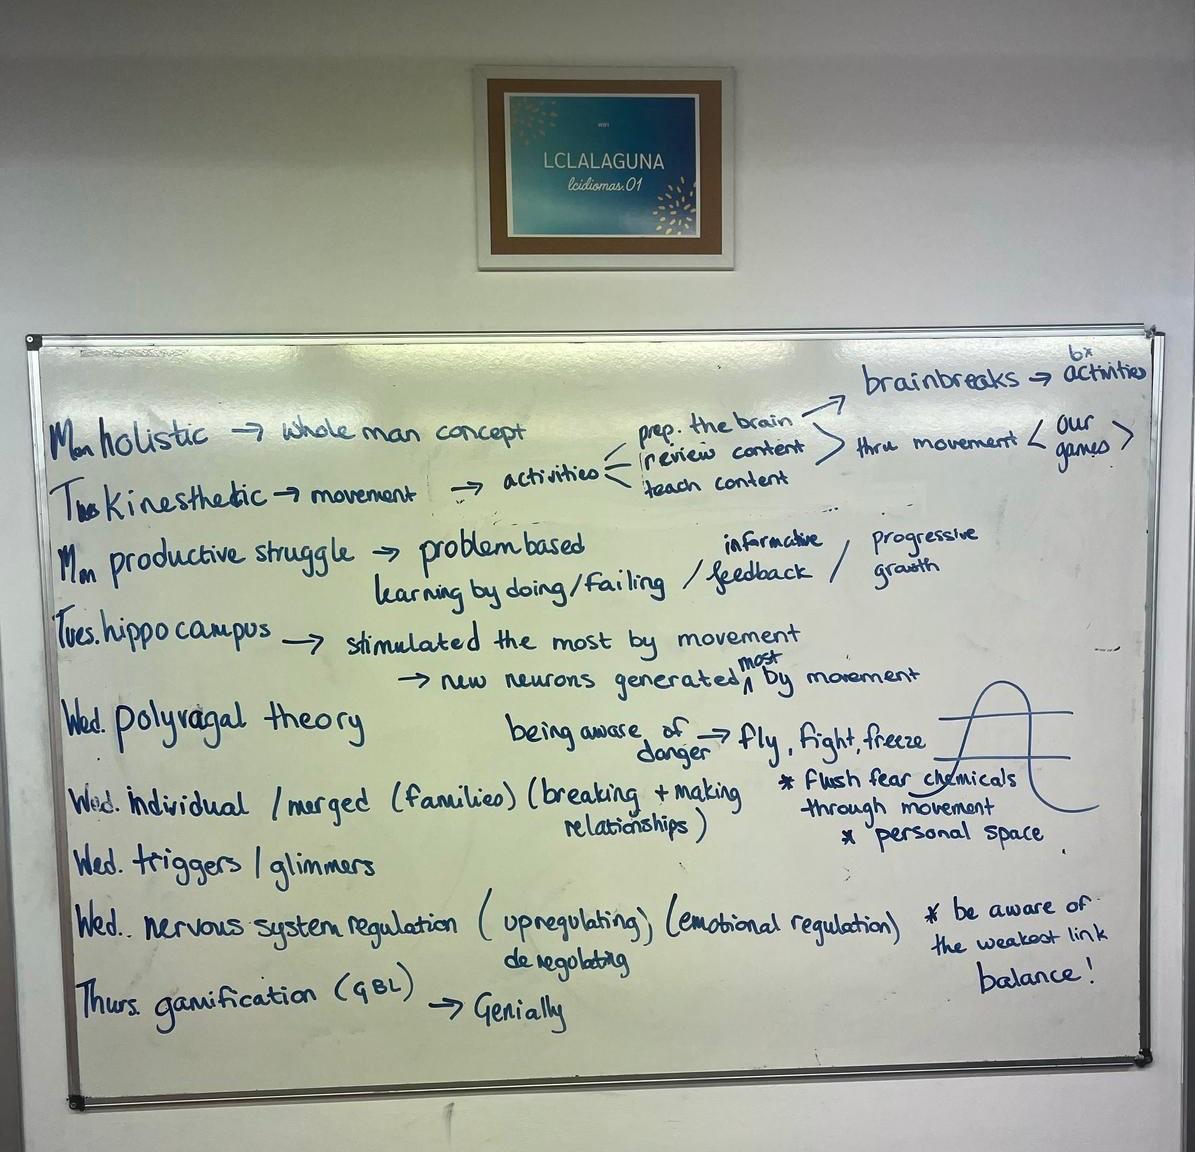 WIFI
LCLALAGUNA
lcidiomas.01
bx
brainbreaks → activities
Mon holistic → whole man concept
prep. the brain
review content
teach content
thru movement < our games >
Tues Kinesthetic → movement → activities
Mon productive struggle → problem based
learning by doing/failing / informative feedback / progressive growth
Tues. hippocampus → stimulated the most by movement
→ new neurons generated most by movement
Wed. polyvagal theory
being aware of danger → fly, fight, freeze
* flush fear chemicals
through movement
* personal space
Wed. individual / merged (families) (breaking + making
relationships)
Wed. triggers / glimmers
Wed.. nervous system regulation (upregulating) (emotional regulation)
deregolating
* be aware of
the weakest link
balance!
Thurs. gamification (GBL) → Genially